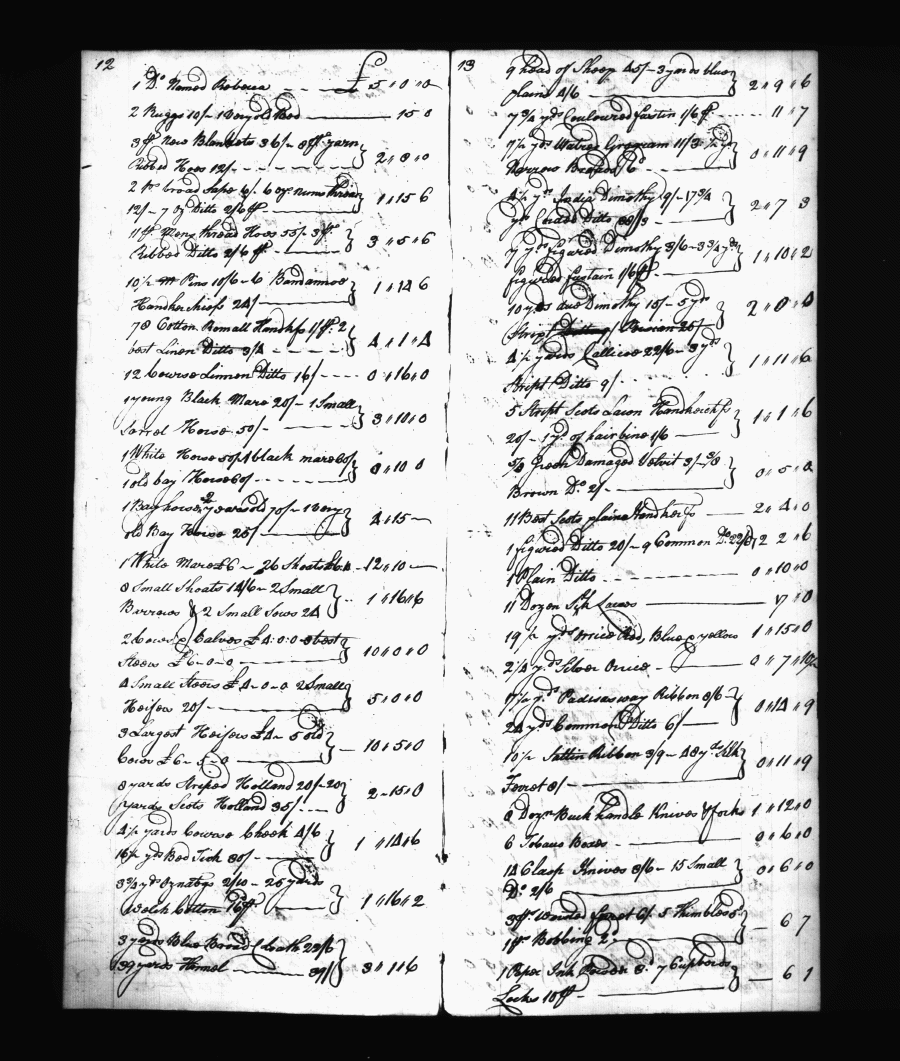 12
£
1 Do Named Rebecca - - - £ 5 " 0 " 0
2 Ruggs 10/- 1 Very old Bed - 15 0
3 ps. New Blankets 36/- 8 yarn
Ribbed Hose 12/- - - - 2 " 8 " 0
2 broad Tape 6/. 6 oz. Nuns thread
12/- 7 oz Ditto 2/6 - 1 " 15 6
11 Mens thread Hose 55/- 3
Ribbed Ditto 2/6 - 3 " 5 " 6
10 1/2 m Pins 10/6 - 6 Bandannoe
Handkerchiefs 24/ - 1 " 14 6
78 Cotton Romall Handkfs 1/ 2
best Linen Ditto 3/4 - - - 4 " 1 " 4
12 Course Linnen Ditto 16/ - - - 0 " 16 " 0
1 young Black Mare 20/- 1 Small
Sorrel Horse 50/- - 3 " 10 " 0
1 White Horse 50/ 1 black mare 60/
1 old bay Horse 60/ - - - 8 " 10 0
1 Bay horse 7 years old 70/- 1 Very
old Bay Horse 25/ - 4 " 15 -
1 White Mare £6 - 26 Shoats - 12 " 10 -
8 Small Shoats 14/6 - 2 Small
Barrows & 2 Small Sows 24 - 1 " 16 " 6
2 Cows & Calves £4.0.0 3 best
Steers £6-0-0 - - - 10 " 0 " 0
4 Small Steers £4-0-0 2 Small
Heifers 20/ - 5 " 0 " 0
3 Largest Heifers £4 - 5 old
Cows £6-5-0 - 10 " 5 " 0
8 yards Striped Holland 20/- 20
yards Scots Holland 35/ - - - 2 - 15 " 0
4 1/2 yards Course Check 4/6
16 1/2 yds Bed Tick 30/- - 1 " 14 " 6
3 3/4 yd Oznabgs 2/10 - 25 yards
Welch Cotton - 1 " 16 " 2
3 yards Blue Broad Cloath 22/6
39 yards Hemel - 39/ 3 " 1 " 6
13
9 head of Sheep 45/- 3 yards blue
plains 4/6 - 2 " 9 " 6
7 3/4 yds Couloured fustin 1/6 - - - 11 " 7
7 1/2 yds Watred Grogram 11/3
Narrow 6 - 0 " 11 " 9
4 1/2 yds India Dimothy 9/- 17 3/4
yds Corded Ditto 38/3 - 2 " 7 3
7 yds figured Dimothy 3/6 - 3 3/4 yds
figured fustain 1/6 - 1 " 10 " 2
10 yds Dimothy 15/- 5 yds
Stript Persian 25/ - 2 " 0 " 0
4 1/2 yards Callicoe 22/6 - 3 yds
Stript Ditto 9/ - - - 1 " 11 " 6
5 Stript Scots Lawn Handkercfs
20/- 1 ps. of hairbine 1/6 - 1 " 1 " 6
5/8 Green Damaged Velvit 3/- 5/8
Brown Do. 2/- - 0 " 5 " 0
11 Best Scots plaine Handkerfs - 2 " 4 " 0
1 figured Ditto 20/- 9 Common Do. 22/6 2 2 " 6
1 Plain Ditto - - - 0 " 10 " 0
11 Dozen Silk Laces - 17 " 0
19 1/2 yds Orrice Red, Blue & yellow 1 " 15 " 0
2 1/4 yds Silver Orrice - 0 " 7 " 10 1/2
17 1/2 yds Padusasway Ribbon 8/6 -
24 yds Common Ditto 6/ - 0 " 14 " 9
10 1/2 Sattin Ribbon 3/9 - 48 yds Silk
Ferret 8/ - 0 " 11 " 9
8 Doz. Buck handle Knives & forks 1 " 12 " 0
6 Tobaco Boxes - 0 " 6 " 0
14 Clasp Knives 3/6 - 15 Small
Do. 2/6 - 0 " 6 " 0
3 Worsted ferret 6/. 5 Thimbles 5
1 Bobbine 2 - - 6 7
1 Paper Ink Powder 8. 7 Cupbords
Locks 10 - - 6 1